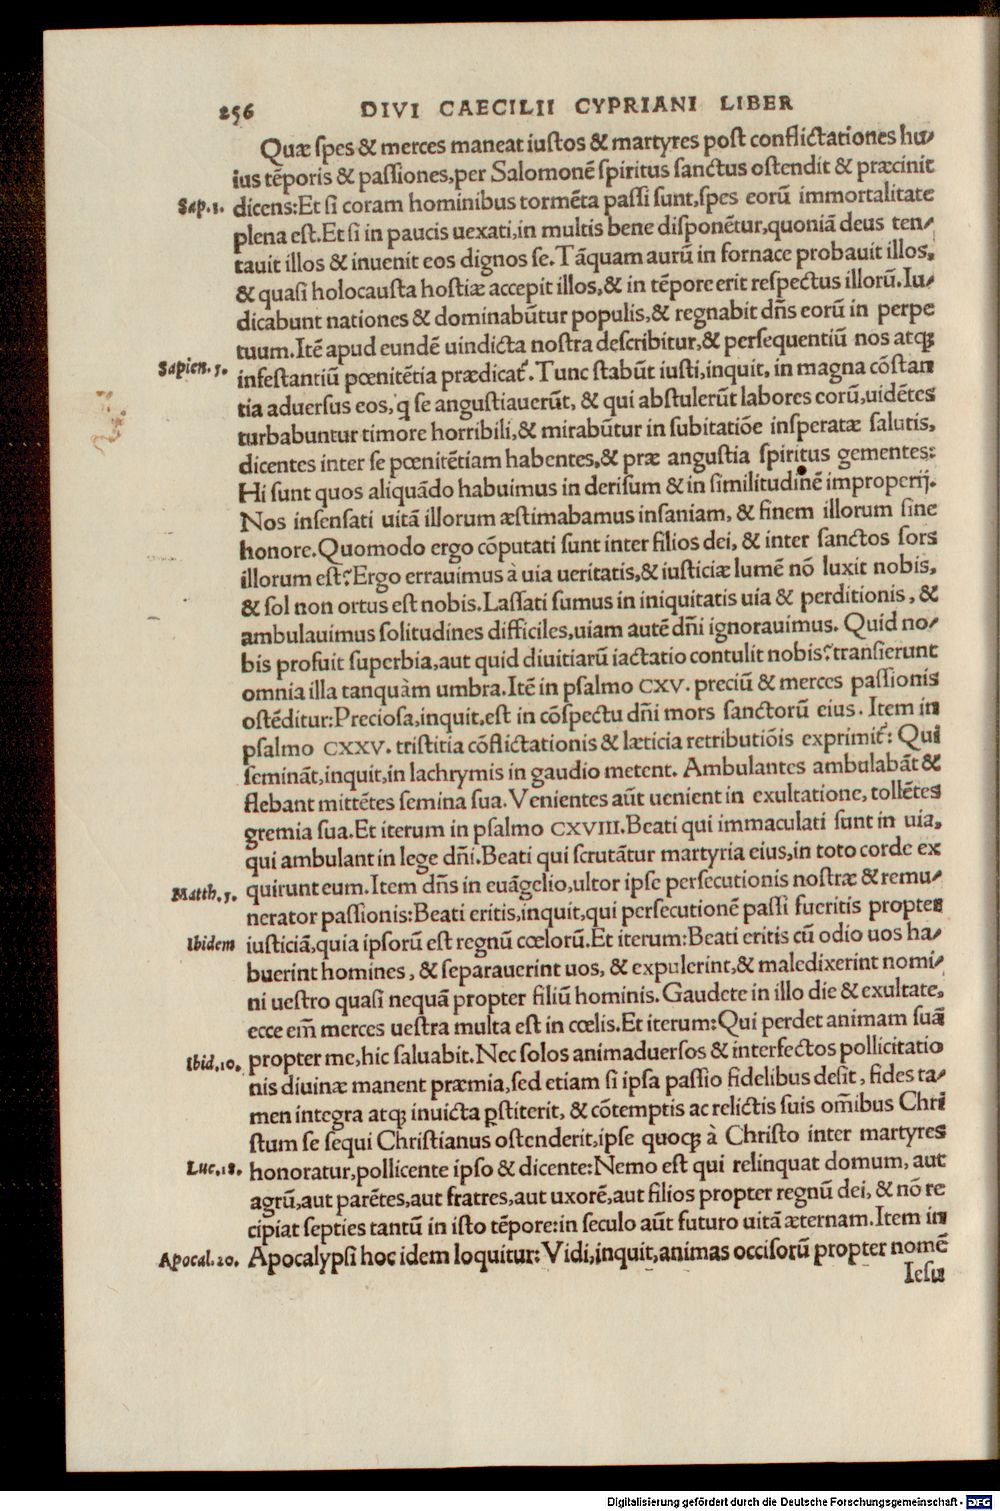 256 DIVI CAECILII CYPRIANI LIBER
Quæ ſpes & merces maneat iuſtos & martyres poſt conflictationes hu/
ius tẽporis & paſſiones,per Salomonẽ ſpiritus ſanctus oſtendit & præcinit
Sap.3. dicens:Et ſi coram hominibus tormẽta paſſi ſunt,ſpes eorũ immortalitate
plena eſt.Et ſi in paucis uexati,in multis bene diſponẽtur,quoniã deus ten/
tauit illos & inuenit eos dignos ſe.Tãquam aurũ in fornace probauit illos,
& quaſi holocauſta hoſtiæ accepit illos,& in tẽpore erit reſpectus illorũ.Iu/
dicabunt nationes & dominabũtur populis,& regnabit dñs eorũ in perpe
tuum.Itẽ apud eundẽ uindicta noſtra deſcribitur,& perſequentiũ nos atqꝫ
Sapien.5. infeſtantiũ pœnitẽtia prædicat᷑.Tunc ſtabũt iuſti,inquit, in magna cõſtan
tia aduerſus eos,q̇ ſe anguſtiauerũt, & qui abſtulerũt labores eorũ,uidẽtes
turbabuntur timore horribili,& mirabũtur in ſubitatiõe inſperatæ ſalutis,
dicentes inter ſe pœnitẽtiam habentes,& præ anguſtia ſpiritus gementes:
Hi ſunt quos aliquãdo habuimus in deriſum & in ſimilitudinẽ improperij.
Nos inſenſati uitã illorum æſtimabamus inſaniam, & finem illorum ſine
honore.Quomodo ergo cõputati ſunt inter filios dei, & inter ſanctos ſors
illorum eſt?Ergo errauimus à uia ueritatis,& iuſticiæ lumẽ nõ luxit nobis,
& ſol non ortus eſt nobis.Laſſati ſumus in iniquitatis uia & perditionis, &
ambulauimus ſolitudines difficiles,uiam autẽ dñi ignorauimus. Quid no/
bis profuit ſuperbia,aut quid diuitiarũ iactatio contulit nobis?tranſierunt
omnia illa tanquàm umbra.Itẽ in pſalmo CXV. preciũ & merces paſſionis
oſtẽditur:Precioſa,inquit,eſt in cõſpectu dñi mors ſanctorũ eius. Item in
pſalmo CXXV. triſtitia cõflictationis & læticia retributiõis exprimit᷑: Qui
ſeminãt,inquit,in lachrymis in gaudio metent. Ambulantes ambulabãt &
flebant mittẽtes ſemina ſua.Venientes aũt uenient in exultatione, tollẽtes
gremia ſua.Et iterum in pſalmo CXVIII.Beati qui immaculati ſunt in uia,
qui ambulant in lege dñi.Beati qui ſcrutãtur martyria eius,in toto corde ex
Matth.5. quirunt eum.Item dñs in euãgelio,ultor ipſe perſecutionis noſtræ & remu/
nerator paſſionis:Beati eritis,inquit,qui perſecutionẽ paſſi fueritis propter
Ibidem iuſticiã,quia ipſorũ eſt regnũ cœlorũ.Et iterum:Beati eritis cũ odio uos ha/
buerint homines, & ſeparauerint uos, & expulerint,& maledixerint nomi/
ni ueſtro quaſi nequã propter filiũ hominis.Gaudete in illo die & exultate,
ecce eim̃ merces ueſtra multa eſt in cœlis.Et iterum:Qui perdet animam ſuã
Ibid.10. propter me,hic ſaluabit.Nec ſolos animaduerſos & interfectos pollicitatio
nis diuinæ manent præmia,ſed etiam ſi ipſa paſſio fidelibus deſit, fides ta/
men integra atqꝫ inuicta ꝑſtiterit, & cõtemptis ac relictis ſuis om̃ibus Chri
ſtum ſe ſequi Chriſtianus oſtenderit,ipſe quoqꝫ à Chriſto inter martyres
Luc.18. honoratur,pollicente ipſo & dicente:Nemo eſt qui relinquat domum, aut
agrũ,aut parẽtes,aut fratres,aut uxorẽ,aut filios propter regnũ dei, & nõ re
cipiat ſepties tantũ in iſto tẽpore:in ſeculo aũt futuro uitã æternam.Item in
Apocal.20. Apocalypſi hoc idem loquitur:Vidi,inquit,animas occiſorũ propter nomẽ
Ieſu
Digitalisierung gefördert durch die Deutsche Forschungsgemeinschaft - DFG